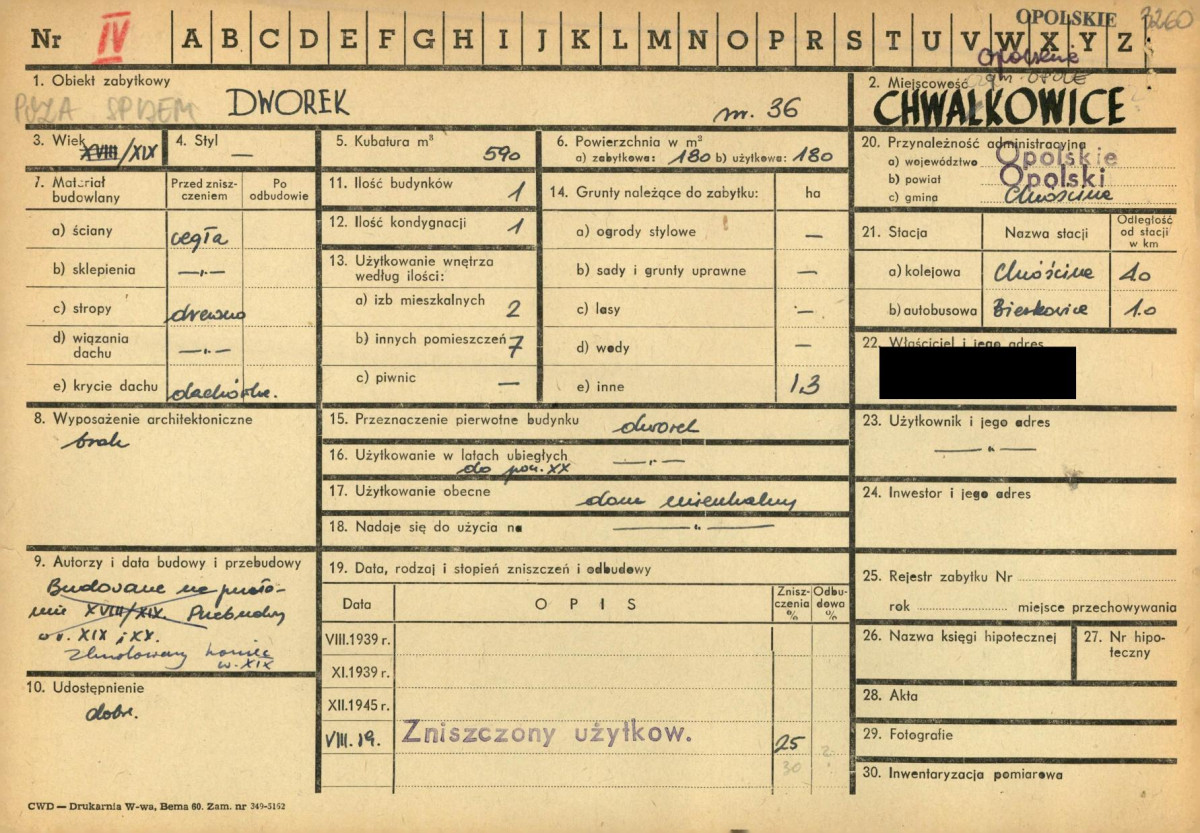 OPOLSKIE 3260
Nr IV A B C D E F G H I J K L M N O P R S T U V W X Y Z
Opolskie
gm. OPOLE
1. Obiekt zabytkowy
POZA SPISEM
DWOREK nr. 36
2. Miejscowość
CHWAŁKOWICE
3. Wiek XVIII/XIX
4. Styl —
5. Kubatura m³ 590
6. Powierzchnia w m²
a) zabytkowa: 180 b) użytkowa: 180
20. Przynależność administracyjna
a) województwo Opolskie
b) powiat Opolski
c) gmina Chróścina
7. Materiał budowlany
Przed zniszczeniem
Po odbudowie
a) ściany cegła
b) sklepienia —„—
c) stropy drewno
d) wiązania dachu —„—
e) krycie dachu dachówka.
11. Ilość budynków 1
12. Ilość kondygnacji 1
13. Użytkowanie wnętrza według ilości:
a) izb mieszkalnych 2
b) innych pomieszczeń 7
c) piwnic —
14. Grunty należące do zabytku: ha
a) ogrody stylowe —
b) sady i grunty uprawne —
c) lasy —
d) wody —
e) inne 1,3
21. Stacja
Nazwa stacji
Odległość od stacji w km
a) kolejowa Chróścina
b) autobusowa Bierkowice 1.0
22. Właściciel i jego adres
8. Wyposażenie architektoniczne
brak
15. Przeznaczenie pierwotne budynku dworek
16. Użytkowanie w latach ubiegłych —„—
do poł. XX
17. Użytkowanie obecne dom mieszkalny
18. Nadaje się do użycia na —„—
23. Użytkownik i jego adres
—„—
24. Inwestor i jego adres
9. Autorzy i data budowy i przebudowy
Budowane na przeło-
mie XVIII/XIX. Przebudowy
w w. XIX i XX.
Zbudowany koniec
w. XIX
10. Udostępnienie
dobre.
19. Data, rodzaj i stopień zniszczeń i odbudowy
Data
OPIS
Zniszczenia %
Odbudowa %
VIII.1939 r.
XI.1939 r.
XII.1945 r.
VIII.19. Zniszczony użytkow. 25
30 ?
25. Rejestr zabytku Nr
rok miejsce przechowywania
26. Nazwa księgi hipotecznej
27. Nr hipoteczny
28. Akta
29. Fotografie
30. Inwentaryzacja pomiarowa
CWD — Drukarnia W-wa, Bema 60. Zam. nr 349-5162